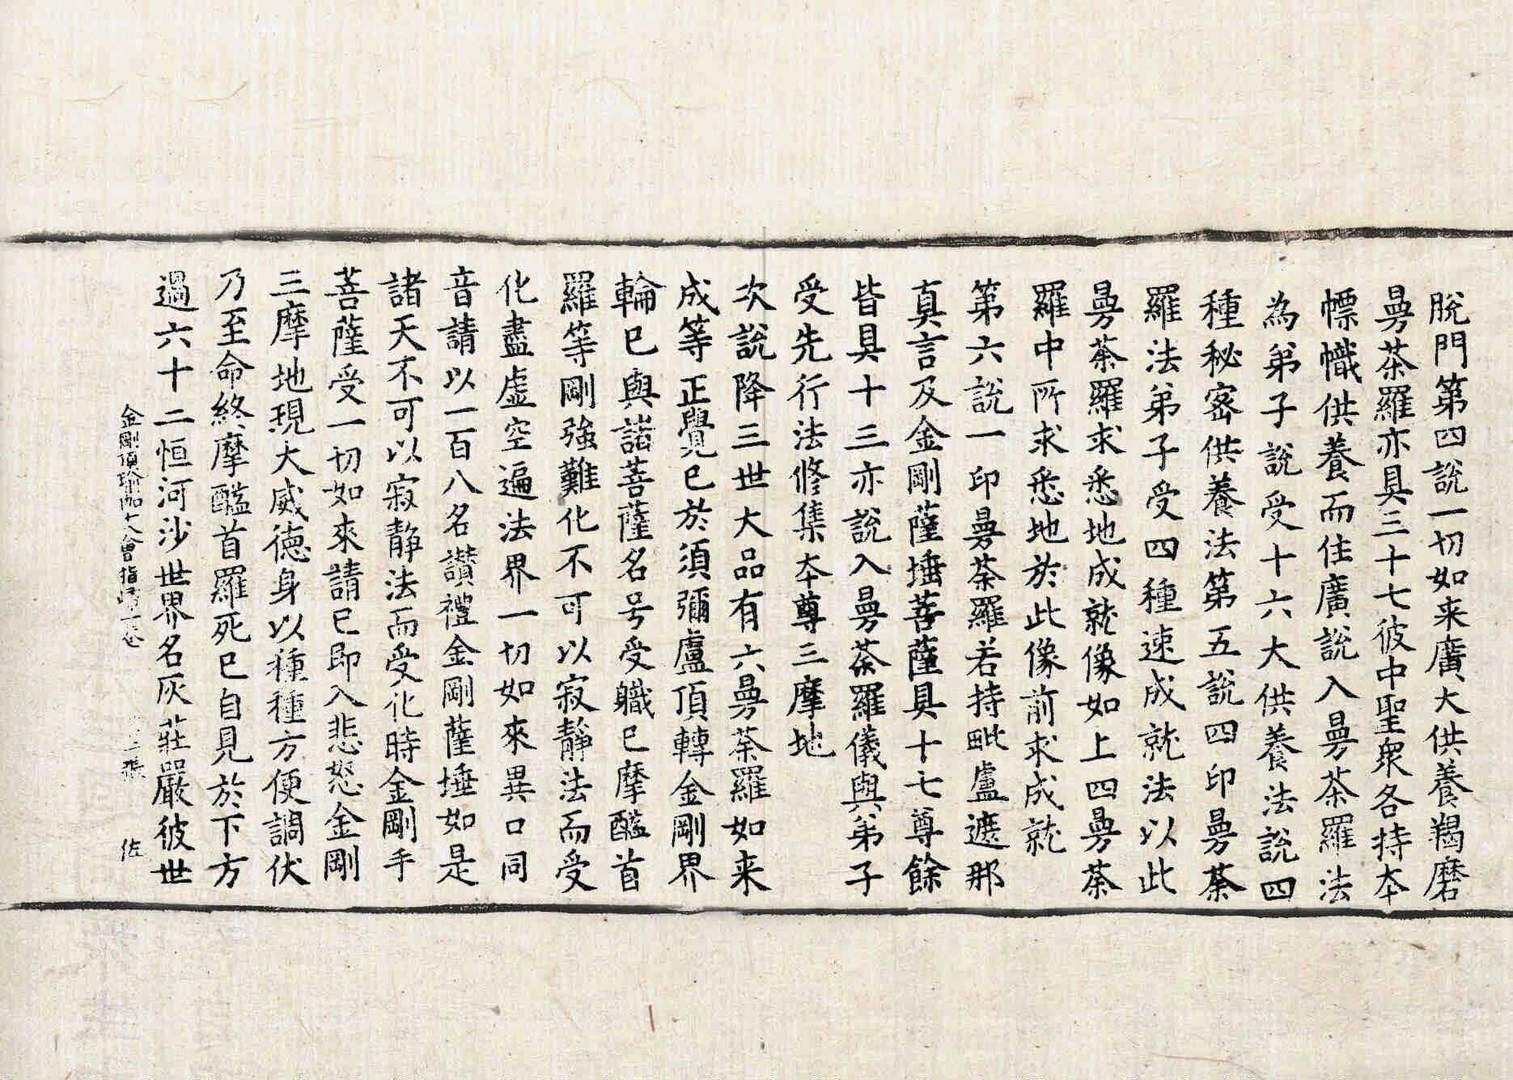 脫門第四說一切如来廣大供養羯磨
曼荼羅亦具三十七彼中聖衆各持本
幖幟供養而住廣說入曼荼羅法
為弟子說受十六大供養法說四
種秘密供養法第五說四印曼荼
羅法弟子受四種速成就法以此
曼荼羅求悉地成就像如上四曼荼
羅中所求悉地於此像前求成就
第六說一印曼荼羅若持毗盧遮那
真言及金剛薩埵菩薩具十七尊餘
皆具十三亦說入曼荼羅儀與弟子
受先行法修集本尊三摩地
次說降三世大品有六曼荼羅如来
成等正覺已於須彌盧頂轉金剛界
輪已與諸菩薩名号受職已摩醯首
羅等剛強難化不可以寂靜法而受
化盡虛空遍法界一切如來異口同
音請以一百八名讚禮金剛薩埵如是
諸天不可以寂靜法而受化時金剛手
菩薩受一切如來請已即入悲怒金剛
三摩地現大威德身以種種方便調伏
乃至命終摩醯首羅死已自見於下方
過六十二恒河沙世界名灰莊嚴彼世
金剛頂瑜伽十八會指歸一卷 二張 佐